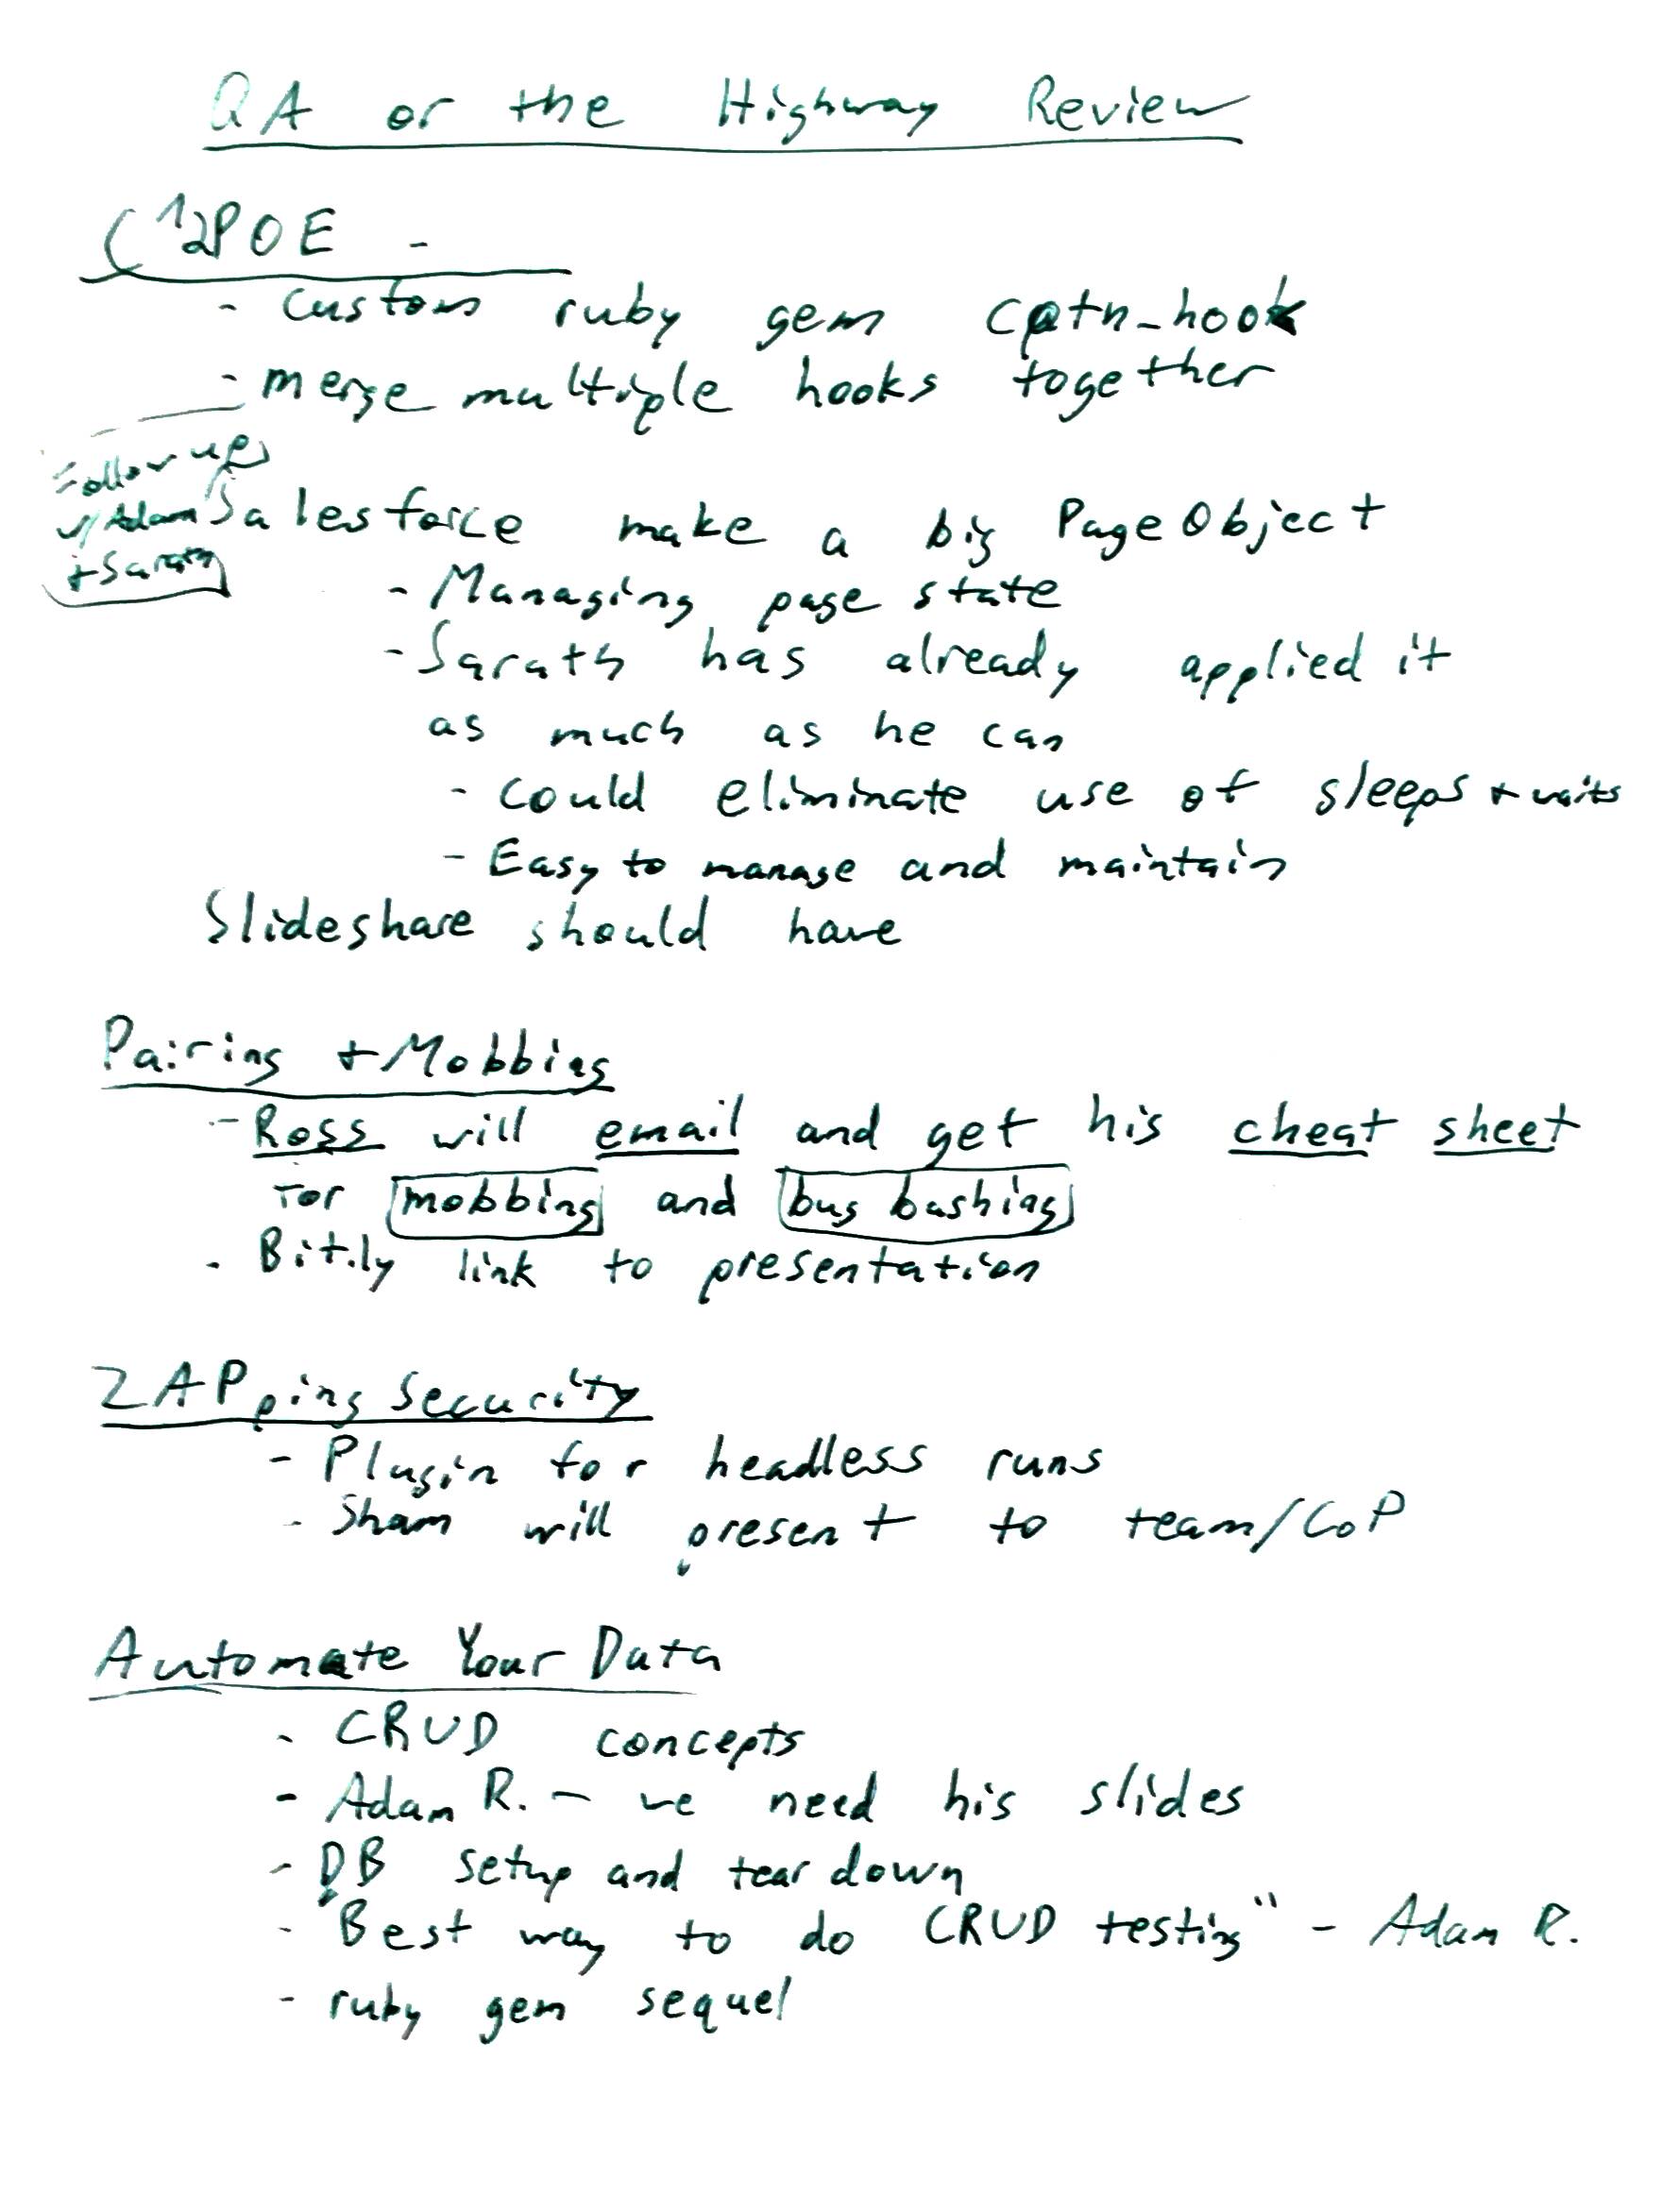 QA or the Highway Review
C12POE -
- custom ruby gem cptn_hook
- merge multiple hooks together
Follow up
w/ Adam
+ Sarath
Salesforce make a big PageObject
- Managing page state
- Sarath has already applied it
as much as he can
- could eliminate use of sleeps + waits
- Easy to manage and maintain
Slideshare should have
Pairing + Mobbing
- Ross will email and get his cheat sheet
for mobbing and bug bashing
- Bit.ly link to presentation
ZAPping Security
- Plugin for headless runs
- Sham will present to team/CoP
Automate Your Data
- CRUD concepts
- Adam R. - we need his slides
- DB setup and tear down
- "Best way to do CRUD testing" - Adam R.
- ruby gem sequel